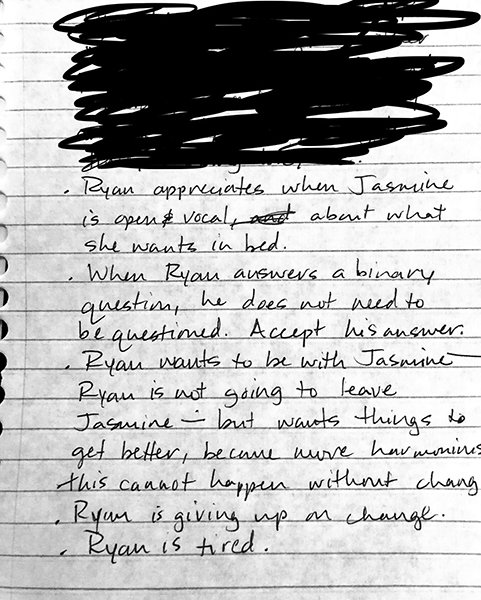 . Ryan appreciates when Jasmine
is open & vocal, and about what
she wants in bed.
. When Ryan answers a binary
question, he does not need to
be questioned. Accept his answer.
. Ryan wants to be with Jasmine —
Ryan is not going to leave
Jasmine — but wants things to
get better, become more harmonius
this cannot happen without chang
. Ryan is giving up on change.
. Ryan is tired.